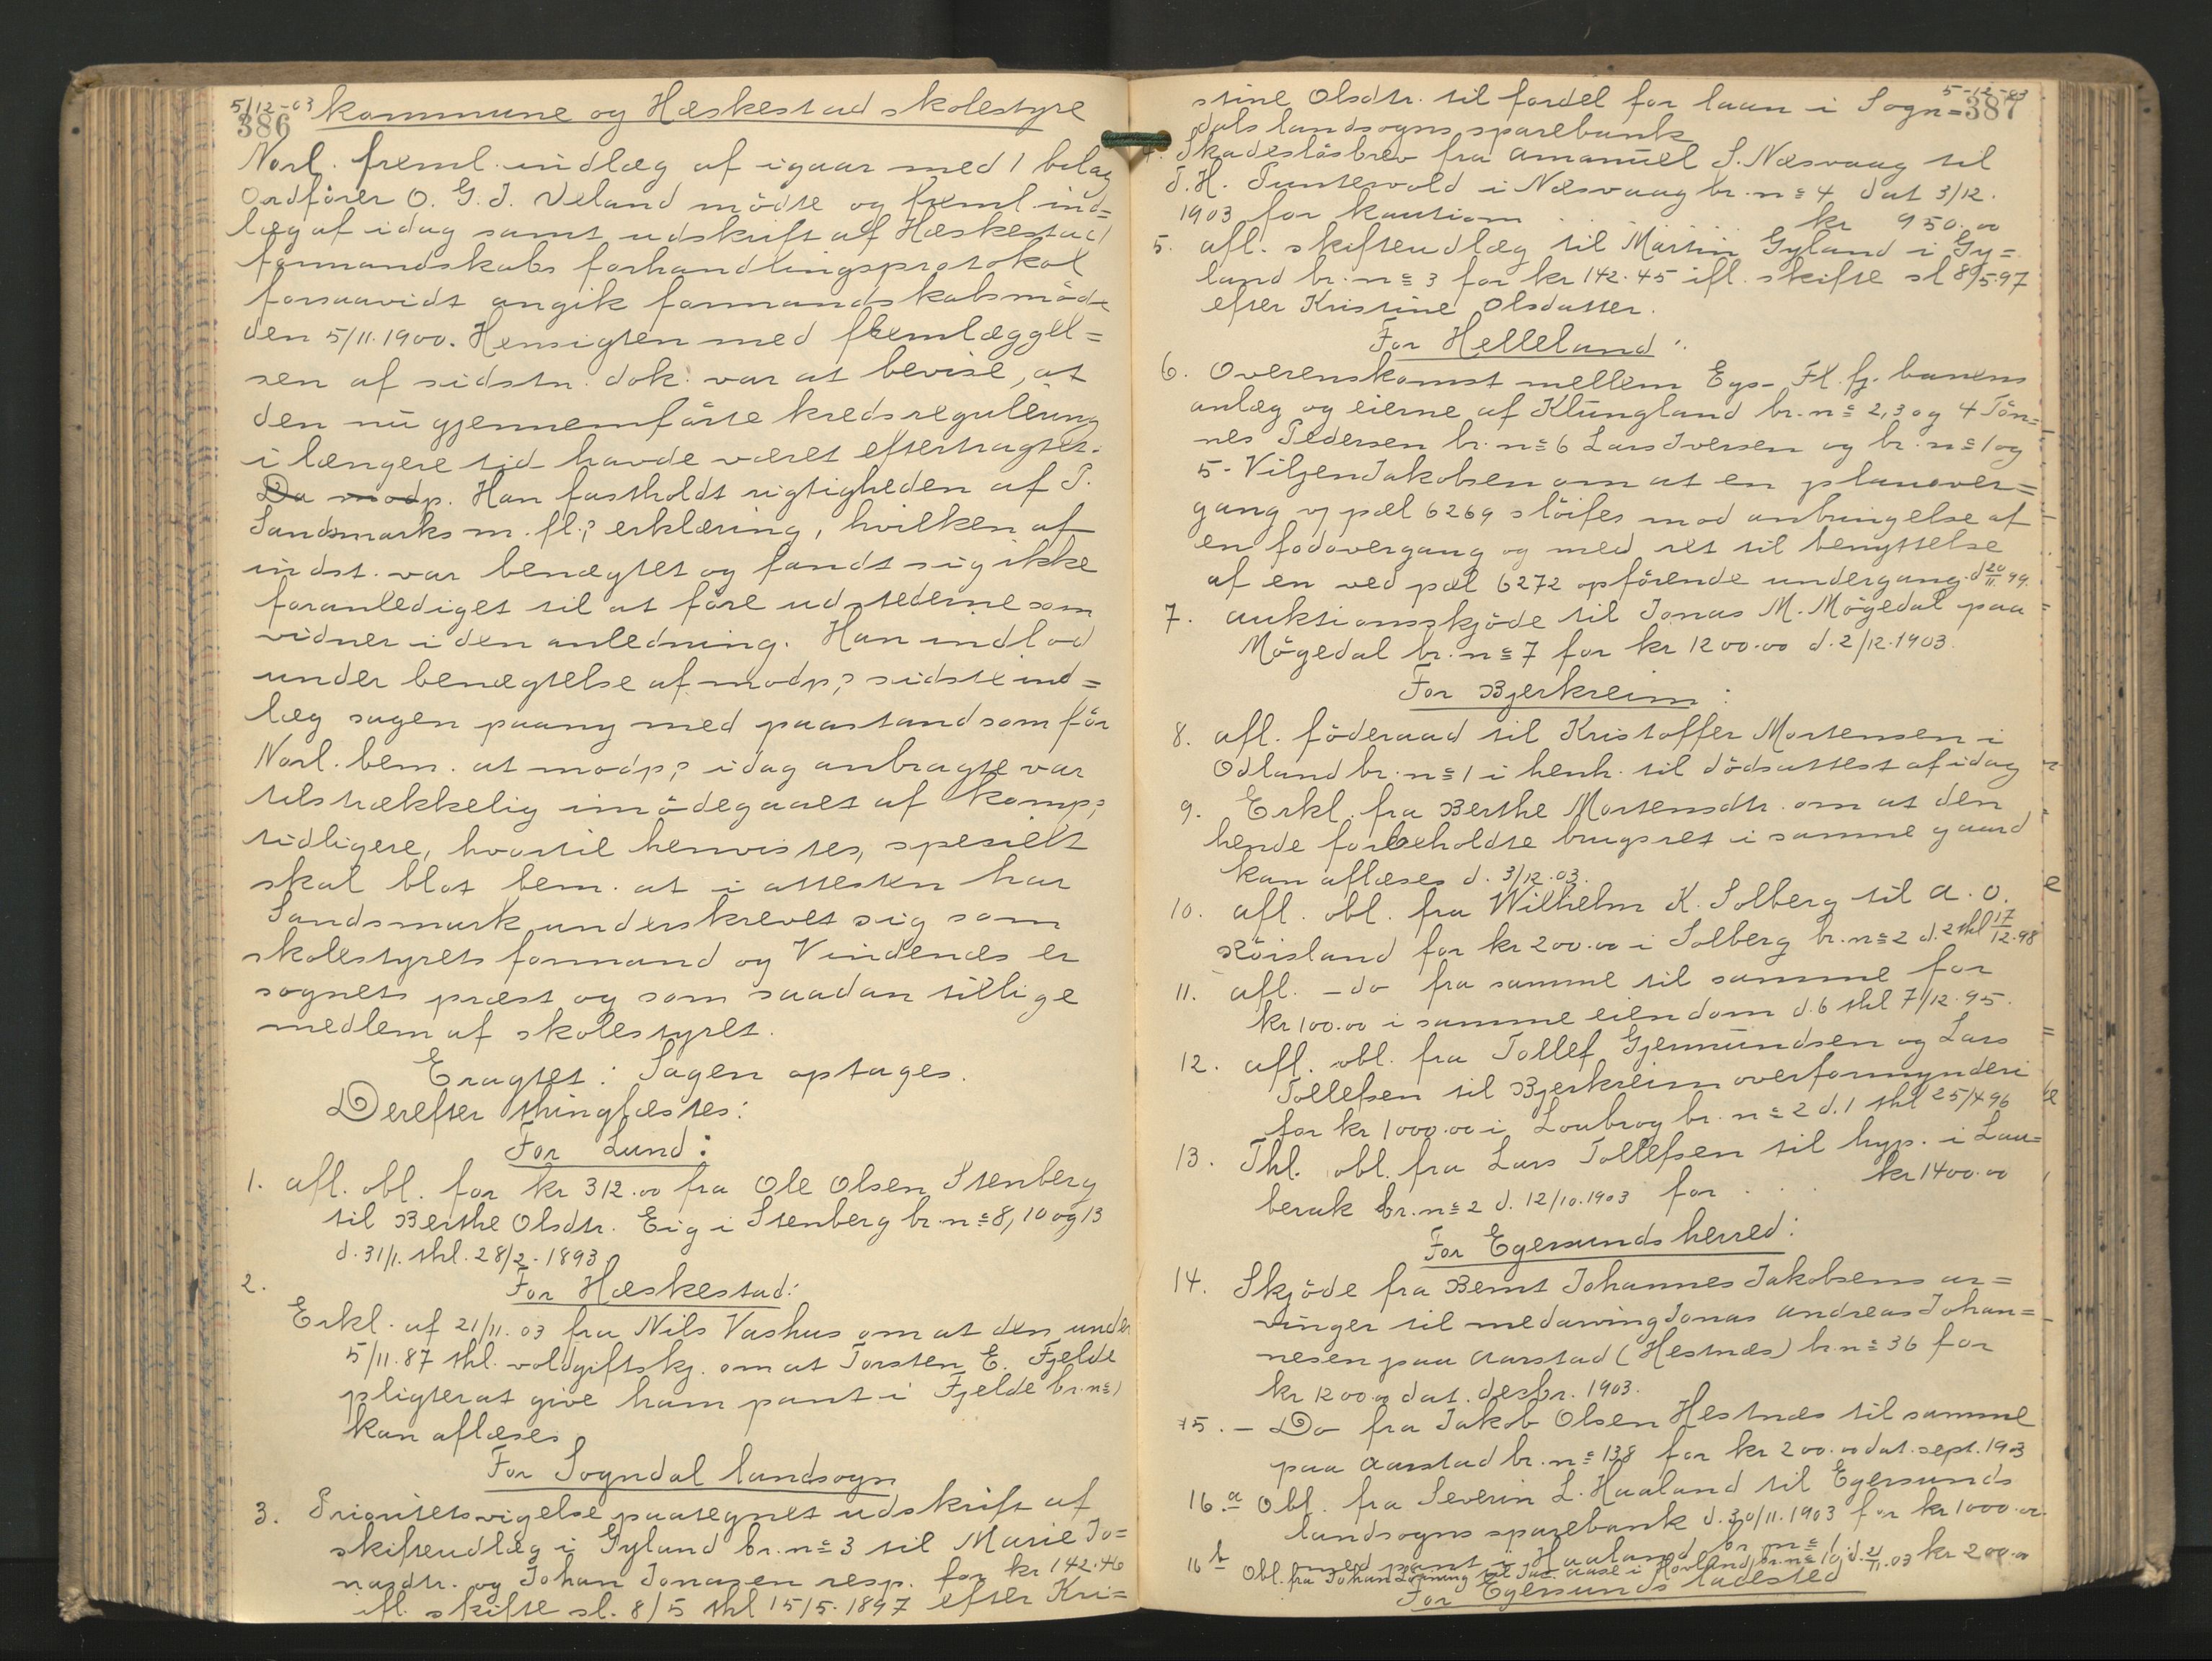 5/12-03
386
kommune og Hæskestad skolestyre
Norl. freml. indlæg af igaar med 1 bilag
Ordfører O. G. J. Veland mödte og freml. ind=
læg af idag samt udskrift af Hæskestad
formandskabs forhandlingsprotokol
forsaavidt angik formandskabsmöde
den 5/11.1900. Hensigten med fremlæggel=
sen af sidstn. dok. var at bevise, at
den nu gjennemförte kredsregulering
i længere tid havde været eftertragtet.
Da modp. Han fastholdt rigtigheden af P.
Sandsmarks m. fl.s erklæring, hvilken af
indst. var benægtet og fandt sig ikke
foranlediget til at före udstederne som
vidner i den anledning. Han indlod
under benægtelse af modp.s sidste ind=
læg sagen paany med paastand som för
Norl. bem. at modp.s idag anbragte var
tilstrækkelig imödegaaet af komp.s
tidligere, hvortil henvistes, spesielt
skal blot bem. at i attesten har
Sandsmark underskrevet sig som
skolestyrets formand og Vindenes er
sognets præst og som saadan tillige
medlem af skolestyret.
Eragtet: Sagen optages.
Derefter thinglæstes:
For Lund:
1. afl. obl. for kr 312.00 fra Ole Olsen Stenberg
til Berthe Olsdtr. Eig i Stenberg br. no 8, 10 og 13
d. 31/1. thl. 28/2-1893
2. For Hæskestad:
Erkl. af 21/11.03 fra Nils Vashus om at den under
5/11.87 thl. voldgiftskj. om at Torsten E. Fjelde
pligter at give ham pant i Fjelde br. no 1
kan aflæses
For Sogndal landsogn
3. Prioritetsvigelse paategnet udskrift af
skifteudlæg i Gyland br. no 3 til Marie Jo=
nasdtr. og Johan Jonasen resp. for kr 142.46
ifl. skifte sl. 8/5 thl 15/5.1897 efter Kri=
5-12-03
387
stine Olsdtr. til fordel for laan i Sogn=
dals landsogns sparebank
4. Skadeslösbrev fra Amanuel S. Næsvaag til
T. H. Puntervold i Næsvaag br. no 4 dat 3/12.
1903 for kaution . . . . kr 950.00
5. afl. skifteudlæg til Martin Gyland i Gy=
land br. no 3 for kr 142.45 ifl. skifte sl 8/5.97
efter Kristine Olsdatter.
For Helleland:
6. Overenskomst mellem Egs- Fl. fj. banens
anlæg og eierne af Klungland br. no 2, 3 og 4 Tön=
nes Pedersen br. no 6 Lars Iversen og br. no 1 og
5- Viljen Jakobsen om at en planover=
gang v/ pæl 6269 slöifes mod anbringelse af
en fodovergang og med ret til benyttelse
af en ved pæl 6272 opförende undergang. d 20/11 99.
7. auktionsskjöde til Jonas M. Mögedal paa
Mögedal br. no 7 for kr 1200.00 d. 2/12.1903.
For Bjerkreim:
8. afl. föderaad til Kristoffer Mortensen i
Odland br. no 1 i henh. til dödsattest af idag
9. Erkl. fra Berthe Mortensdtr. om at den
hende forbeholdte brugsret i samme gaard
kan aflæses d. 3/12.03.
10. afl. obl. fra Wilhelm K. Solberg til A. O.
Röisland for kr 200.00 i Solberg br. no 2 d. 2 thl 17/12.98
11. afl. - do fra samme til samme for
kr 100.00 i samme eiendom d. 6 thl 7/12.95.
12. afl. obl. fra Tollef Gjermundsen og Lars
Tollefsen til Bjerkreim overformynderi
for kr 1000.00 i Loubrog br. no 2 d. 1 thl 25/4 96
13. Thl. obl. fra Lars Tollefsen til hyp. i Lau=
berak br. no 2 d. 12/10.1903 for . . . kr 1400.00
For Egersunds herred:
14. Skjöde fra Bernt Johannes Jakobsens ar=
vinger til medarving Jonas Andreas Johan=
nesen paa Aarstad (Hestnæs) br. no 36 for
kr 1200.00 dat. desbr. 1903.
15. - Do fra Jakob Olsen Hestnæs til samme
paa Aarstad br. no 138 for kr 200.00 dat. sept. 1903
16.a Obl. fra Severin L. Haaland til Egersunds
landsogns sparebank d. 30/11.1903 for kr 1000.00.
med pant i Haaland br no 1.
16b Obl. fra Johan Lönning til Jac. Aase i Hovland br. no 10 d. 21/11.03 kr 200.00
For Egersunds ladested